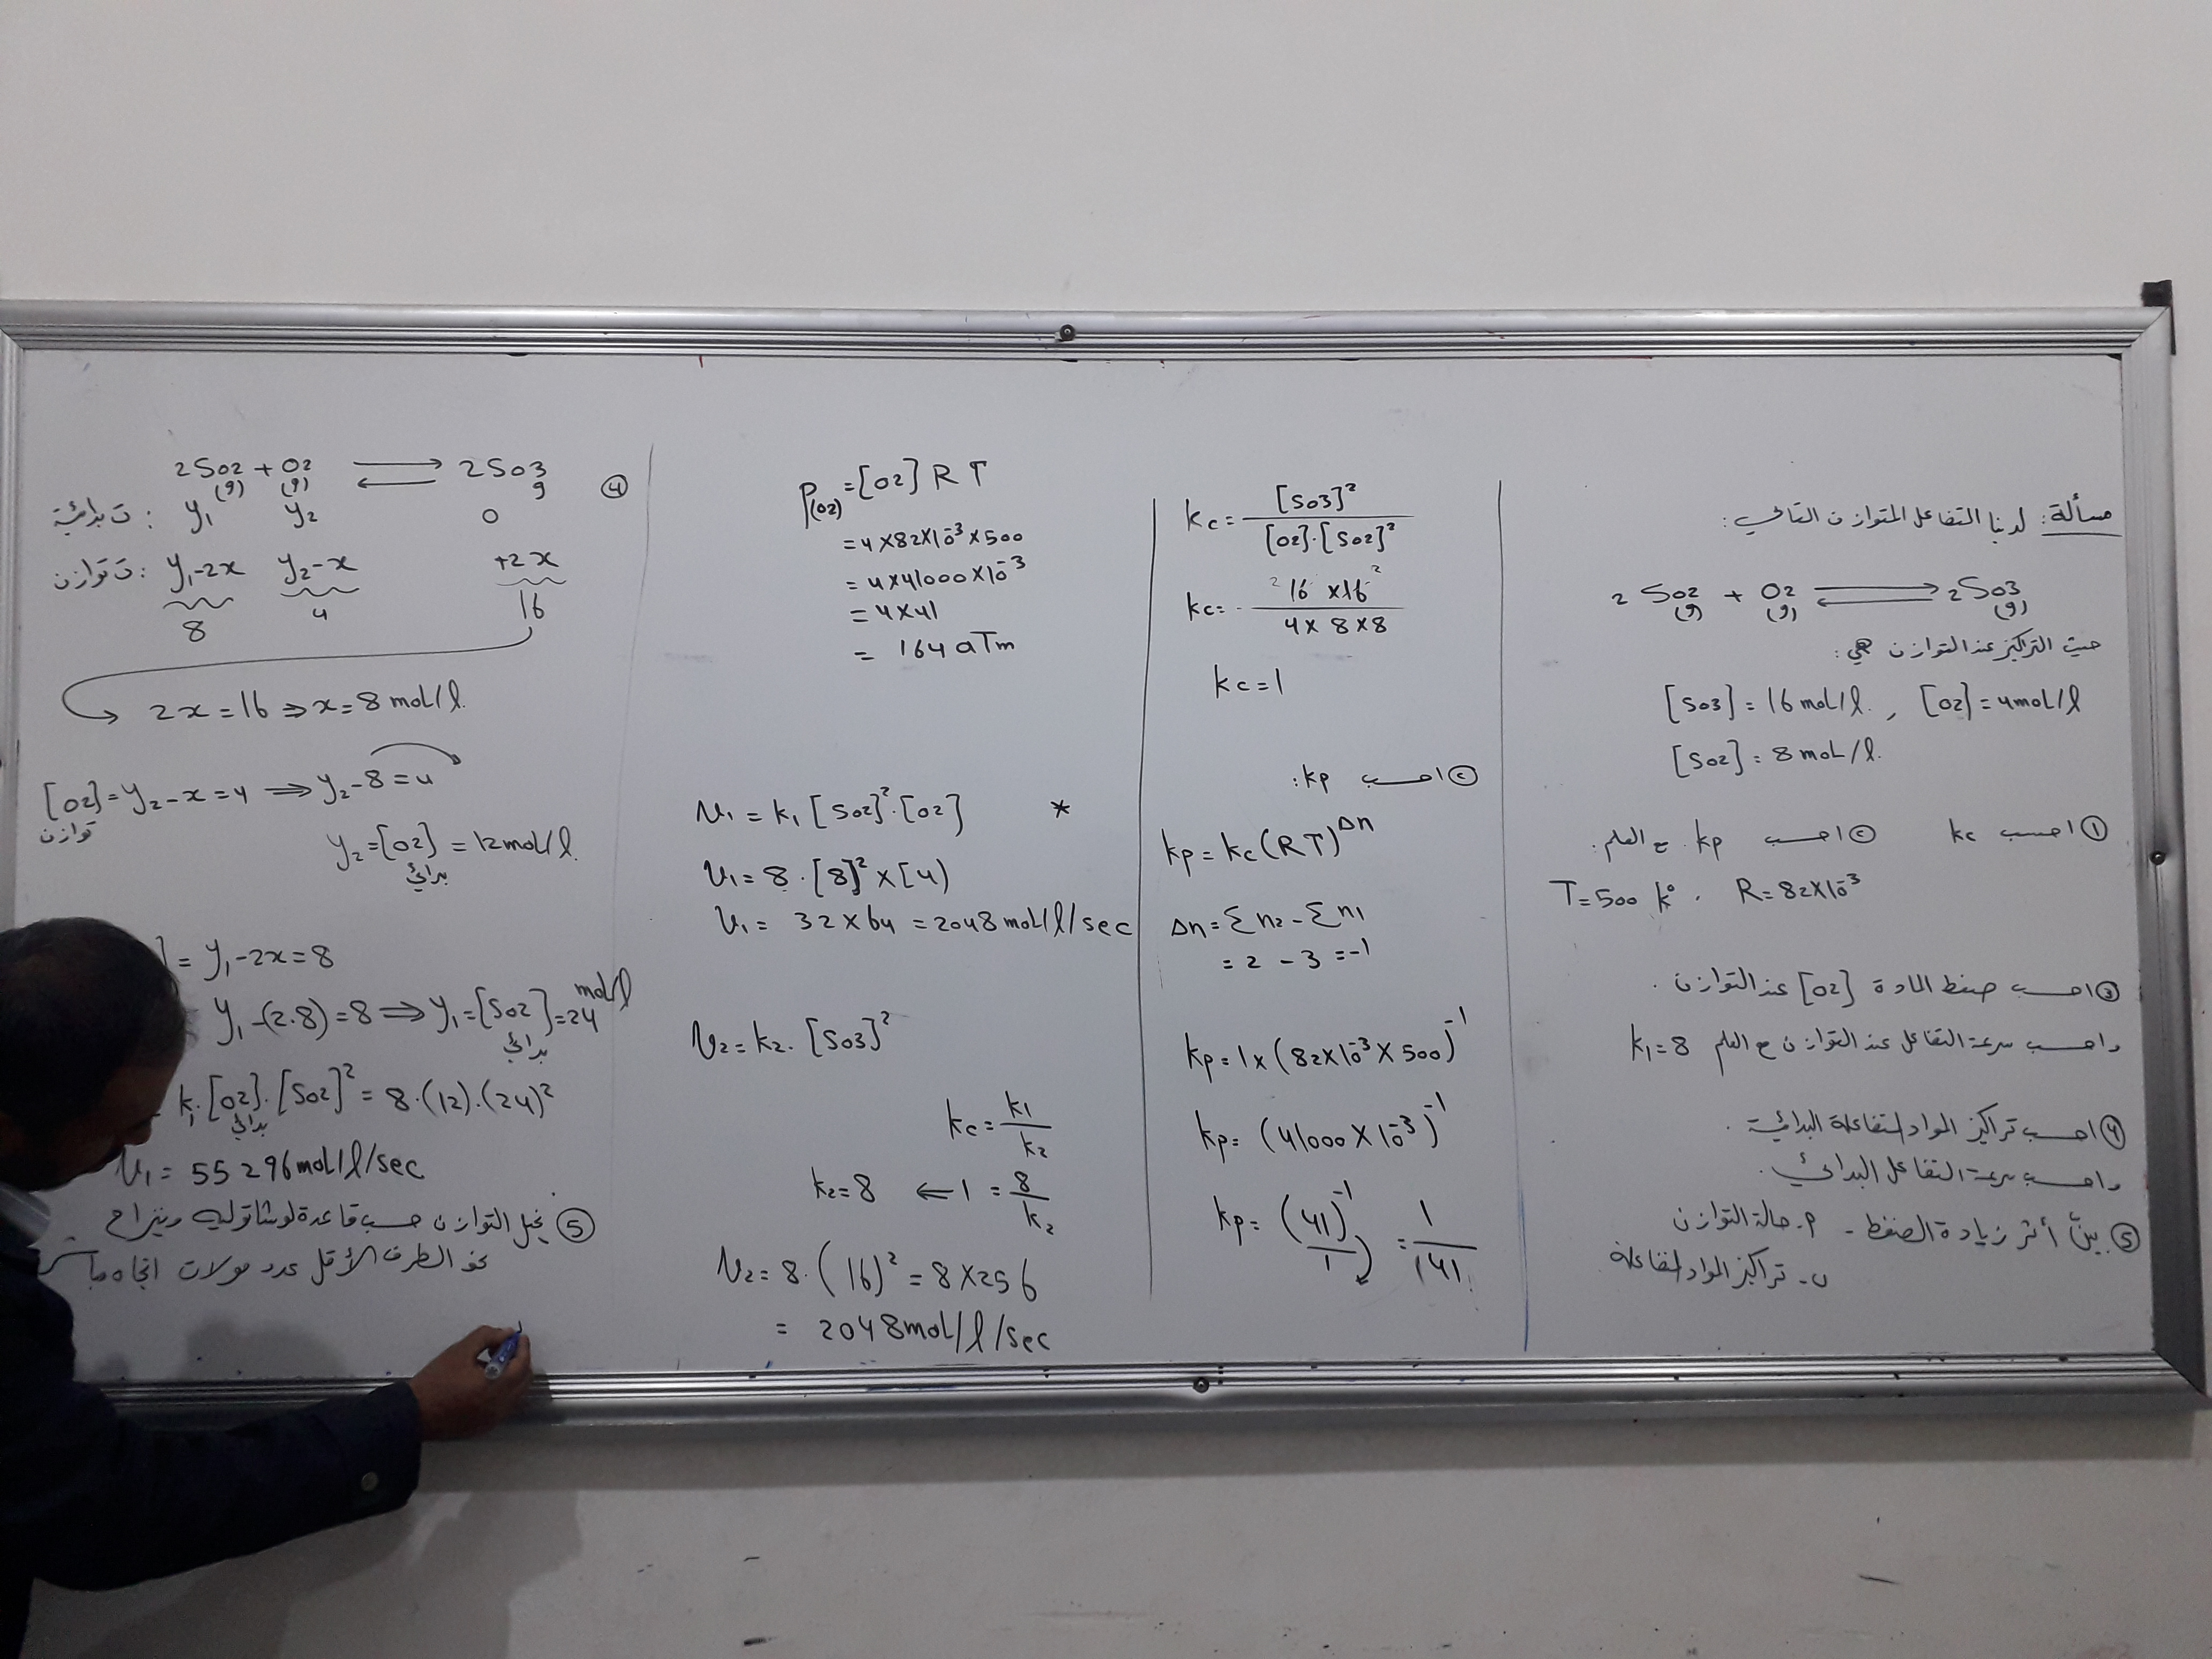 مسألة: لدينا التفاعل المتوازن التالي:
2 SO2 (g) + O2 (g) ⇌ 2 SO3 (g)
حيث التراكيز عند التوازن هي:
[SO3] = 16 mol/l , [O2] = 4 mol/l
[SO2] = 8 mol/l.
① احسب kc ② احسب kp. ع العلم:
T = 500 k° . R = 82×10⁻³
③ احسب ضغط المادة [O2] عند التوازن.
واحسب سرعة التفاعل عند التوازن ع العلم k1 = 8
④ احسب تراكيز المواد المتفاعلة البدائية.
واحسب سرعة التفاعل البدائي.
⑤ بيّن أثر زيادة الضغط - م. حالة التوازن
ب - تراكيز المواد المتفاعلة
kc = [SO3]² / [O2].[SO2]²
kc = 2 16 × 16 2 / 4 × 8 × 8
kc = 1
② احسب kp:
kp = kc (RT)^Δn
Δn = Σn2 - Σn1
= 2 - 3 = -1
kp = 1 × (82×10⁻³ × 500)⁻¹
kp = (41000 × 10⁻³)⁻¹
kp = (41/1)⁻¹ = 1/41
P(O2) = [O2] R T
= 4×82×10⁻³×500
= 4×41000×10⁻³
= 4×41
= 164 aTm
v1 = k1 [SO2]².[O2] *
v1 = 8 . [8]² × [4)
v1 = 32 × 64 = 2048 mol/l/sec
v2 = k2. [SO3]²
kc = k1/k2
k2 = 8 ⇐ 1 = 8/k2
v2 = 8. (16)² = 8×256
= 2048 mol/l/sec
④ 2SO2 (g) + O2 (g) ⇌ 2SO3 g
ت بدائية: y1 y2 0
ت توازن: y1-2x y2-x +2x
8 4 16
2x = 16 ⇒ x = 8 mol/l.
[O2] توازن = y2 - x = 4 ⇒ y2 - 8 = 4
y2 = [O2] بدائي = 12 mol/l.
] = y1 - 2x = 8
y1 - (2.8) = 8 ⇒ y1 = [SO2] بدائي = 24 mol/l
k1.[O2] بدائي.[SO2]² = 8.(12).(24)²
v1 = 55296 mol/l/sec
⑤ يختل التوازن حسب قاعدة لوشاتوليه وينزاح
نحو الطرف الأقل عدد مولات اتجاه